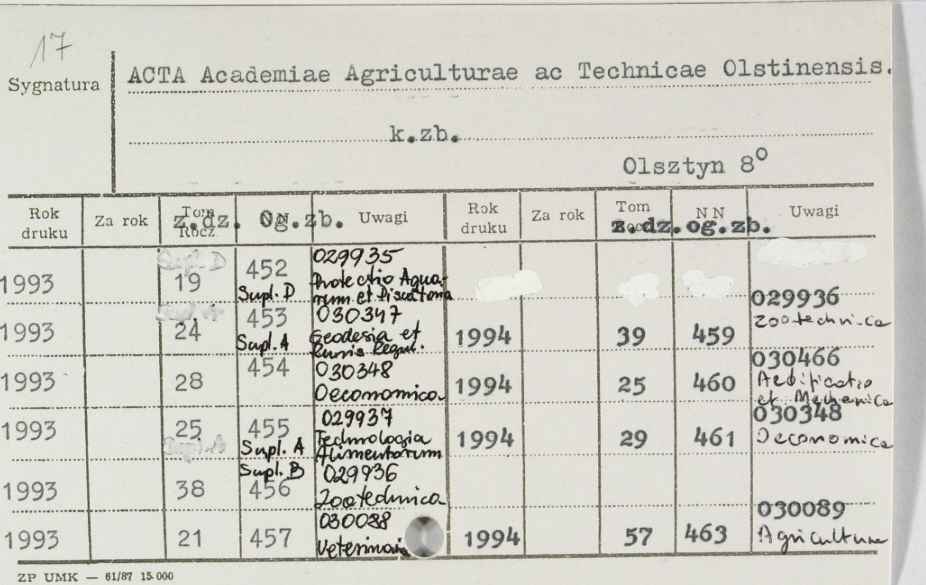 17
Sygnatura
ACTA Academiae Agriculturae ac Technicae Olstinensis.
k.zb.
Olsztyn 8o
Rok druku Za rok Tom Rocz z.dz. og.zb. Uwagi Rok druku Za rok Tom z.dz.og.zb. NN Uwagi
029935
1993 19 452 Supl. D Protectio Aquarum et Piscatoria
029936
030347
1993 24 453 Supl. A Geodesia et Ruris Regul. 1994 39 459 Zootechnica
030466
1993 28 454 030348 Oeconomica 1994 25 460 Aedificatio et Mechanica
029937 030348
1993 25 455 Supl. A Technologia Alimentorum 1994 29 461 Oeconomica
Supl. B 029936
1993 38 456 Zootechnica
030088 030089
1993 21 457 Veterinaria 1994 57 463 Agricultura
ZP UMK — 61/87 15.000